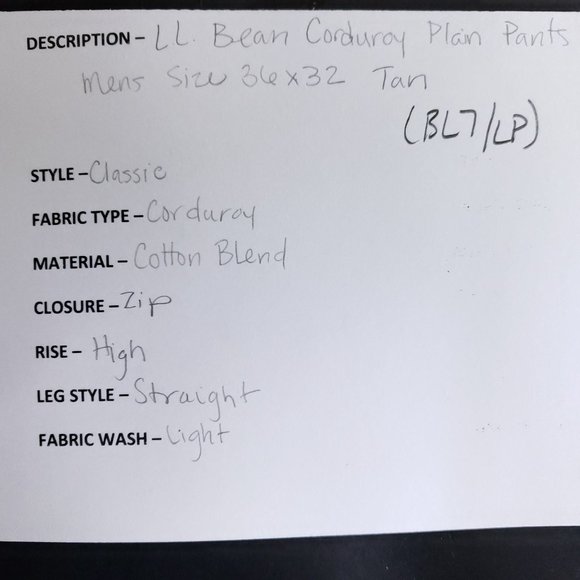 DESCRIPTION - L.L. Bean Corduroy Plain Pants
Mens Size 36x32 Tan
(BL7/LP)
STYLE - Classic
FABRIC TYPE - Corduroy
MATERIAL - Cotton Blend
CLOSURE - Zip
RISE - High
LEG STYLE - Straight
FABRIC WASH - Light